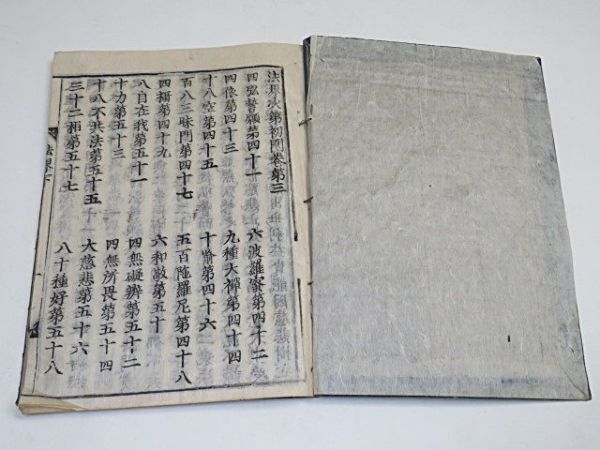 法界次第初門卷第三
四弘誓願第四十一　六波羅蜜第四十二
四依第四十三　九種大禪第四十四
十八空第四十五　十喻第四十六
百八三昧門第四十七　五百陀羅尼第四十八
四攝第四十九　六和敬第五十
八自在我第五十一　四無礙辯第五十二
十力第五十三　四無所畏第五十四
十八不共法第五十五　大慈悲第五十六
三十二相第五十七　八十種好第五十八
法界下